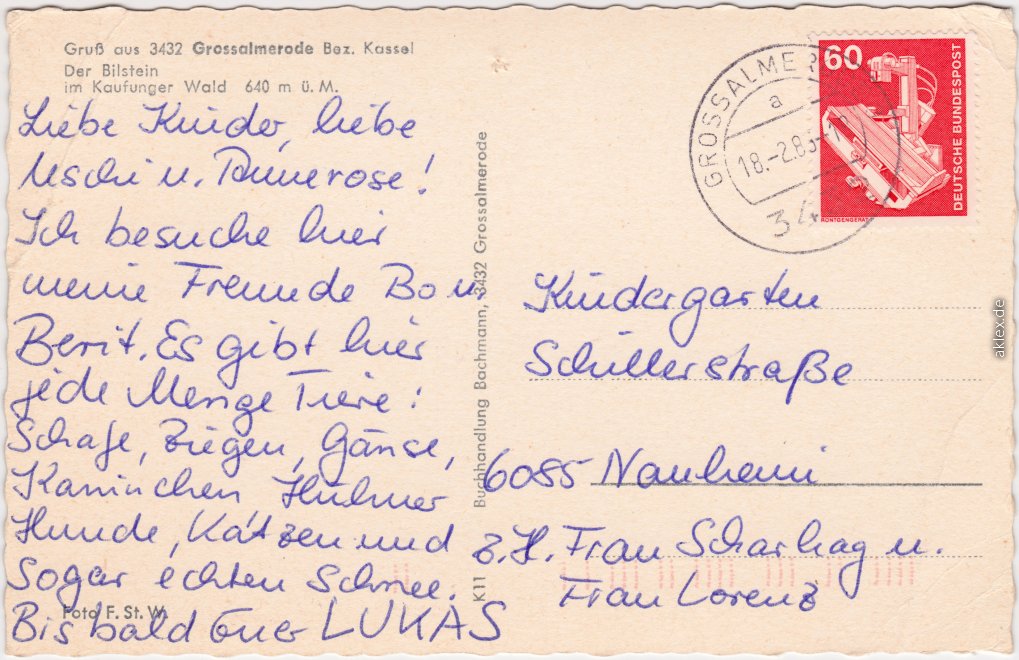 Gruß aus 3432 Grossalmerode Bez. Kassel
Der Bilstein
im Kaufunger Wald 640 m ü. M.
Liebe Kinder, liebe
Uschi u. Annerose!
Ich besuche hier
meine Freunde Bo u.
Berit. Es gibt hier
jede Menge Tiere:
Schafe, Ziegen, Gänse,
Kaninchen, Hühner
Hunde, Katzen und
Sogar echten Schnee.
Foto F. St. W.
Bis bald Euer LUKAS
K11 Buchhandlung Bachmann, 3432 Grossalmerode
GROSSALMER
a
18.-2.83-1
34
60
DEUTSCHE BUNDESPOST
RÖNTGENGERÄT
Kindergarten
Schillerstraße
6085 Nauheim
z.H. Frau Scharhag u.
Frau Lorenz
aklex.de